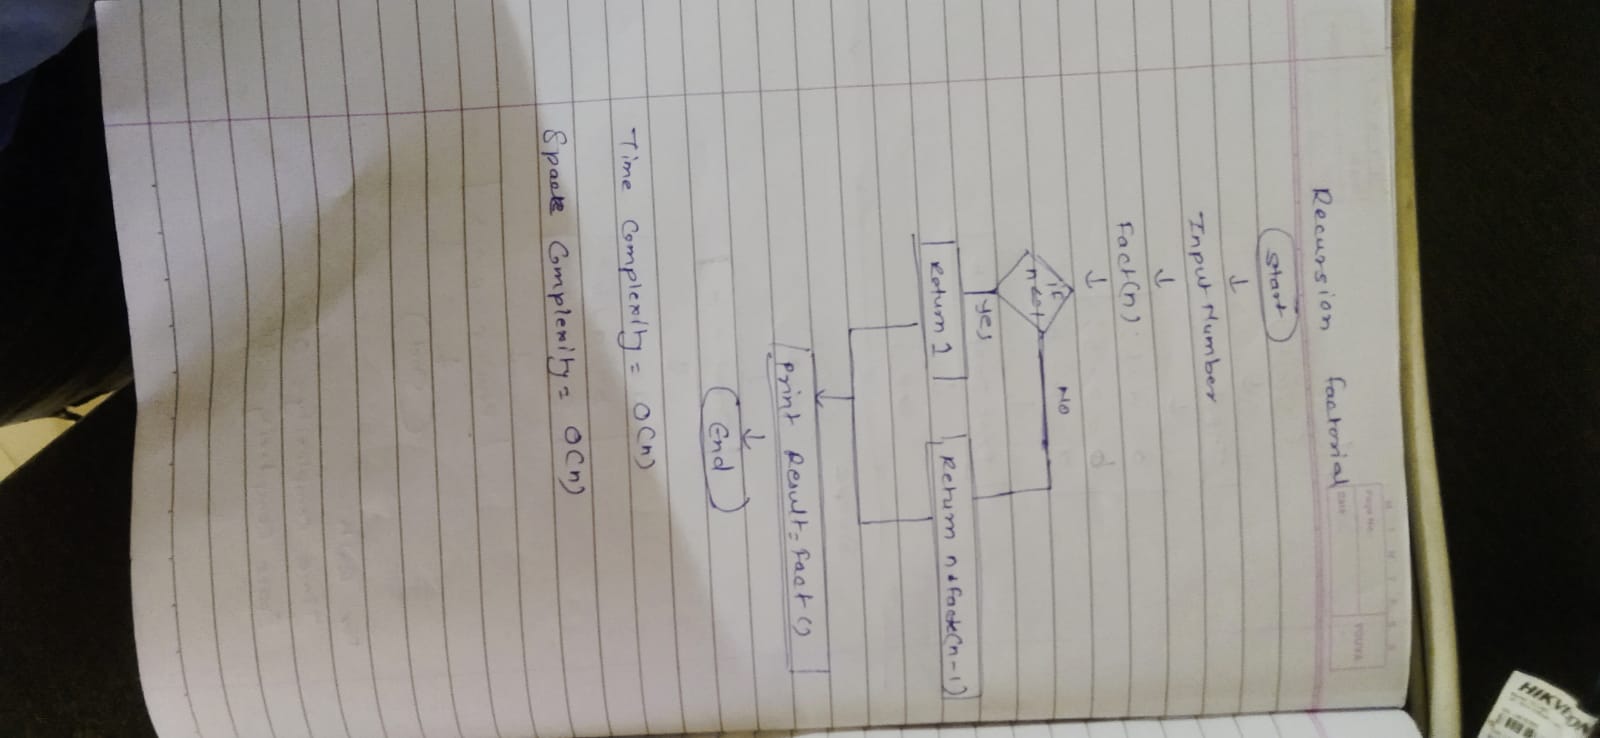 Recursion factorial
Page No.
Date
YOUVA
Start
↓
Input Number
↓
Fact(n)
↓
if
No
Yes
Return 1
Return n*fact(n-1)
Print Result = fact()
↓
End
Time Complexity = O(n)
Space Complexity = O(n)
HIKVISION